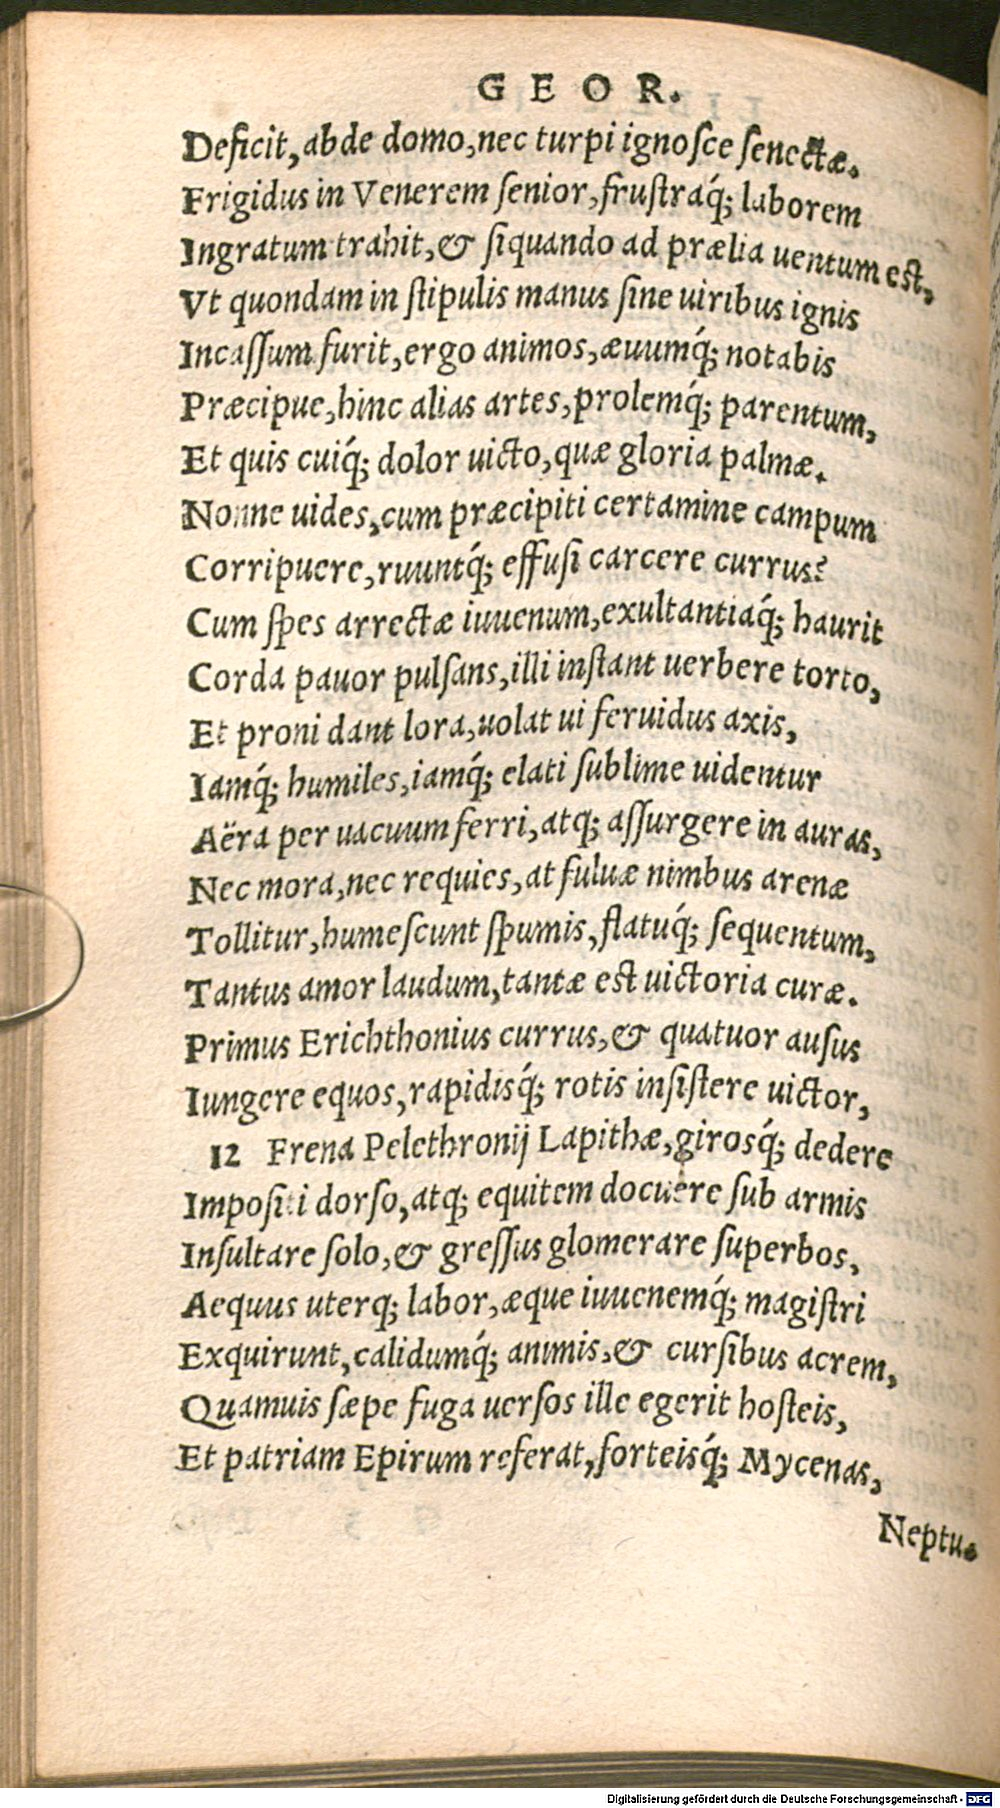 GEOR.
Deficit, abde domo, nec turpi ignoſce ſenectæ.
Frigidus in Venerem ſenior, fruſtraq́; laborem
Ingratum trahit, & ſiquando ad prælia uentum eſt,
Vt quondam in ſtipulis manus ſine uiribus ignis
Incaſſum furit, ergo animos, æuumq́; notabis
Præcipue, hinc alias artes, prolemq́; parentum,
Et quis cuiq́; dolor uicto, quæ gloria palmæ.
Nonne uides, cum præcipiti certamine campum
Corripuere, ruuntq́; effuſi carcere currus?
Cum ſpes arrectæ iuuenum, exultantiaq́; haurit
Corda pauor pulſans, illi inſtant uerbere torto,
Et proni dant lora, uolat ui feruidus axis,
Iamq́; humiles, iamq́; elati ſublime uidentur
Aëra per uacuum ferri, atq; aſſurgere in auras,
Nec mora, nec requies, at fuluæ nimbus arenæ
Tollitur, humeſcunt ſpumis, flatuq́; ſequentum,
Tantus amor laudum, tantæ eſt uictoria curæ.
Primus Erichthonius currus, & quatuor auſus
Iungere equos, rapidisq́; rotis inſiſtere uictor,
12 Frena Pelethronij Lapithæ, girosq́; dedere
Impoſiti dorſo, atq; equitem docuere ſub armis
Inſultare ſolo, & greſſus glomerare ſuperbos,
Aequus uterq; labor, æque iuuenemq́; magiſtri
Exquirunt, calidumq́; animis, & curſibus acrem,
Quamuis ſæpe fuga uerſos ille egerit hoſteis,
Et patriam Epirum referat, forteisq́; Mycenas,
Neptu-
Digitalisierung gefördert durch die Deutsche Forschungsgemeinschaft - DFG